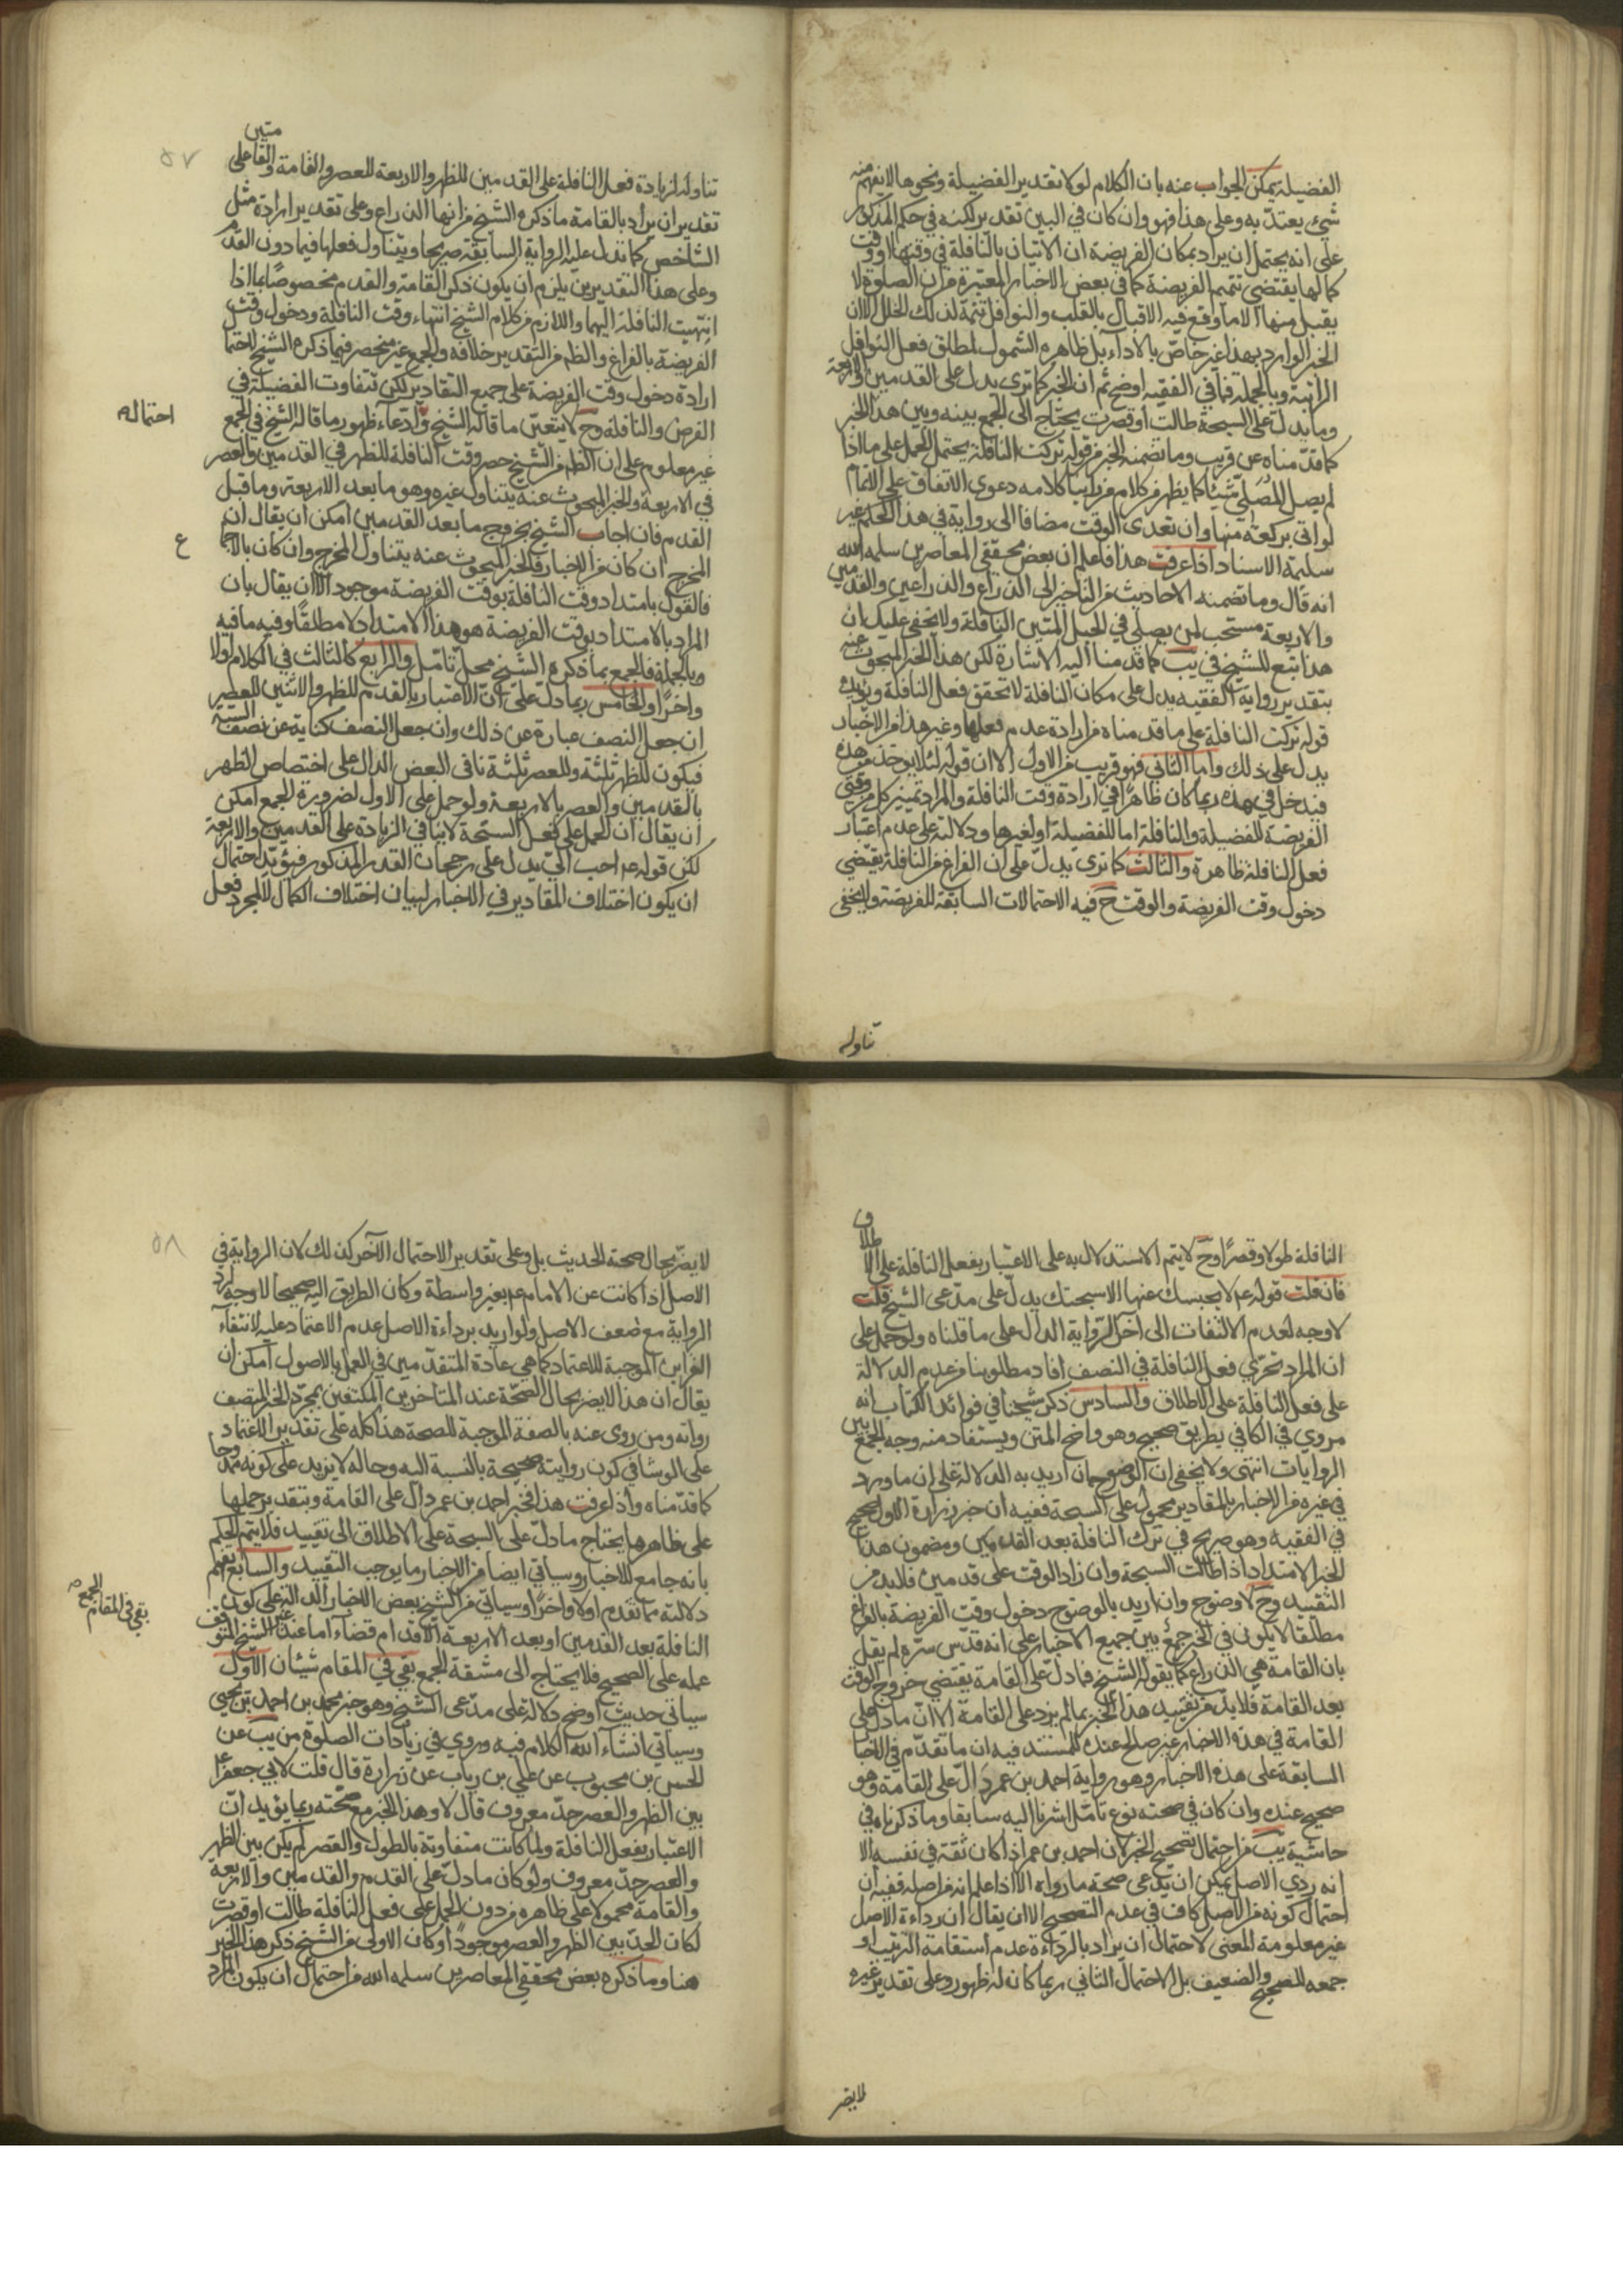 الفضيلة يمكن الجواب عنه بان الكلام لولا تقدير الفضيلة ونحوها لا نفهم منه
شيئ يعتدّ به وعلى هذا فهو وان كان في البين تقدير لكنه في حكم المذكور
على انه يحتمل ان يراد بمكان الفريضة ان الاتيان بالنافلة في وقتها او وقت
كمالها يقتضي تتميم الفريضة كما في بعض الاخبار المعتبرة من ان الصلوة لا
يقبل منها الا ما وقع فيه الاقبال بالقلب والنوافل تتمة لذلك الخلل الا ان
الخبر الوارد بهذا غير خاصّ بالاداء بل ظاهره الشمول لمطلق فعل النوافل
الراتبة وبالجملة فما في الفقيه اوضح ثم ان الخبر كما ترى يدل على القدمين والاربعة
وما يدل على السبحة طالت او قصرت يحتاج الى الجمع بينه وبين هذا الخبر
كما قدّمناه عن قريب وما تضمنه الخبر من قوله تركت النافلة يحتمل الحمل على ما اذا
لم يصل المصلّي شيئا كما يظهر من كلام من راينا كلامه دعوى الاتفاق على الاتمام
لو اتى بركعة منها وان تعدى الوقت مضافا الى رواية في هذا الحكم غير
سليمة الاسناد اذا عرفت هذا فاعلم ان بعض محققي المعاصرين سلمه الله
انه قال وما تضمنه الاحاديث من التاخير الى الذراع والذراعين والقدمين
والاربعة مستحب لمن يصلي في الحبل المتين النافلة ولا يخفى عليك ان
هذا تبع للشيخ في يب كما قدمنا اليه الاشارة لكن هذا الخبر المبحوث عنه
بتقدير رواية الفقيه يدل على مكان النافلة لا تحقق فعل النافلة ويؤيده
قوله تركت النافلة على ما قدمناه من ارادة عدم فعلها وغير هذا من الاخبار
يدل على ذلك واما الثاني فهو قريب من الاول الا ان قوله لئلا يوخذ من هذه
فيدخل في هذه ربما كان ظاهرا في ارادة وقت النافلة والمراد تميز كل من وقتي
الفريضة للفضيلة والنافلة اما للفضيلة او لغيرها ودلالته على عدم اعتبار
فعل النافلة ظاهرة والثالث كما ترى يدل على ان الفراغ من النافلة يقتضي
دخول وقت الفريضة والوقت ح فيه الاحتمالات السابقة للفريضة ولا يخفى
تناوله
٥٧
تناوله لزيادة فعل النافلة على القدمين للظهر والاربعة للعصر والقامة والقامتين فعلى
تقدير ان يراد بالقامة ما ذكره الشيخ من انها الذراع وعلى تقدير ارادة مثل
الشاخص كما تدل عليه الرواية السابقة صريحا ويتناول فعلها فيما دون القدم
وعلى هذا التقديرين يلزم ان يكون ذكر القامة والقدم مخصوصا بما اذا
انتهيت النافلة اليهما واللازم من كلام الشيخ انتهاء وقت النافلة ودخول وقت
الفريضة بالفراغ والظم من التقدير خلافه والجمع غير منحصر فيما ذكره الشيخ لاحتمال
ارادة دخول وقت الفريضة على جميع التقادير لكن تتفاوت الفضيلة في
الفرض والنافلة وح لا يتعيّن ما قاله الشيخ وادّعاء ظهور ما قاله الشيخ في الجمع
احتماله
غير معلوم على ان الظم من الشيخ حصر وقت النافلة للظهر في القدمين والعصر
في الاربعة والخبر المبحوث عنه يتناول غيره وهو ما بعد الاربعة وما قبل
القدم فان اجاب الشيخ بخروج ما بعد القدمين امكن ان يقال ان
المخرج ان كان من الاخبار فالخبر المبحوث عنه يتناول المخرج وان كان بالاجماع
ع
فالقول بامتداد وقت النافلة بوقت الفريضة موجود الا ان يقال بان
المراد بالامتداد بوقت الفريضة هو هذا الامتداد لا مطلقا وفيه ما فيه
وبالجملة فالجمع بما ذكره الشيخ محل تامّل والرابع كالثالث في الكلام اولا
واخرا والخامس ربما دل على ان الاعتبار بالقدم للظهر والاثنين للعصر
ان جعل النصف عبارة عن ذلك وان جعل النصف كناية عن نصف الستة
فيكون للظهر ثلثة وللعصر ثلثة نافى البعض الدال على اختصاص الظهر
بالقدمين والعصر بالاربعة ولو حمل على الاول لضرورة الجمع امكن
ان يقال ان الحمل على فعل السبحة لا ينافي الزيادة على القدمين والاربعة
لكن قوله عم احب اليّ يدل على رجحان القدر المذكور فيؤيّد احتمال
ان يكون اختلاف المقادير في الاخبار لبيان اختلاف الكمال لا لمجرد فعل
النافلة طولا وقصرا وح لا يتم الاستدلال به على الاعتبار بفعل النافلة على الاطلاق
فان قلت قوله عم لا يحبسك عنها الا سبحتك يدل على مدّعى الشيخ قلت
لا وجه لعدم الالتفات الى اخر الرواية الدال على ما قلناه ولو حمل على
ان المراد تحرّي فعل النافلة في النصف افاد مطلوبنا من عدم الدلالة
على فعل النافلة على الاطلاق والسادس ذكر شيخنا في فوائد الكتاب انه
مروي في الكافي بطريق صحيح وهو واضح المتن ويستفاد منه وجه الجمع بين
الروايات انتهى ولا يخفى ان الوضوح ان اريد به الدلالة على ان ما ورد
في غيره من الاخبار بالمقادير محمول على السبحة ففيه ان خبر زرارة الاول صحيح
في الفقيه وهو صريح في ترك النافلة بعد القدمين ومضمون هذا
الخبر الامتداد اذا طالت السبحة وان زاد الوقت على قدمين فلا بد من
التقييد وح لا وضوح وان اريد بالوضوح دخول وقت الفريضة بالفراغ
مطلقا لا يكون في الخبر جمع بين جميع الاخبار على انه قدّس سرّه لم يقل
بان القامة هي الذراع كما يقوله الشيخ فما دلّ على القامة يقتضي خروج الوقت
بعد القامة فلا بدّ من تقييد هذا الخبر بما لم يزد على القامة الا ان ما دل على
القامة في هذه الاخبار غير صالح عنده للمستند فيه ان ما تقدّم في الاخبار
السابقة على هذه الاخبار وهو رواية احمد بن عمر دالّ على القامة وهو
صحيح عنده وان كان في صحته نوع تامّل اشرنا اليه سابقا وما ذكرناه في
حاشية يب من احتمال تصحيح الخبر لان احمد بن عمر اذا كان ثقة في نفسه الا
انه ردي الاصل يمكن ان يدعى صحة ما رواه الا اذا علم انه من اصله ففيه ان
احتمال كونه من الاصل كاف في عدم التصحيح الا ان يقال ان رداءة الاصل
غير معلومة المعنى لاحتمال ان يراد بالرداءة عدم استقامة الترتيب او
جمعه للصحيح والضعيف بل الاحتمال الثاني ربما كان له ظهور وعلى تقدير غيره
لا يضر
٥٨
لا يضرّ بحال صحة الحديث بل وعلى تقدير الاحتمال الآخر كذلك لان الرواية في
الاصل اذا كانت عن الامام عم بغير واسطة وكان الطريق اليه صحيحا لا وجه لردّ
الرواية مع ضعف الاصل ولو اريد برداءة الاصل عدم الاعتماد عليه لانتفاء
القراين الموجبة للاعتماد كما هي عادة المتقدّمين في العمل بالاصول امكن ان
يقال ان هذا لا يضر بحال الصحّة عند المتاخرين المكتفين بمجرّد الخبر المتصف
رواته ومن روى عنه بالصفة الموجبة للصحة هذا كله على تقدير الاعتماد
على الوشا في كون روايته صحيحة بالنسبة اليه وحاله لا يزيد على كونه ممدوحا
كما قدّمناه واذا عرفت هذا فخبر احمد بن عمر دالّ على القامة وبتقدير حملها
على ظاهرها يحتاج ما دلّ على السبحة على الاطلاق الى تقييد فلا يتم الحكم
بانه جامع للاخبار وسياتي ايضا من الاخبار ما يوجب التقييد والسابع يعلم
دلالته مما تقدم اولا واخرا وسياتي من الشيخ بعض الاخبار الدالة على كون
النافلة بعد القدمين او بعد الاربعة الاقدام قضاء اما عند غير الشيخ المتوقف
عمله على الصحيح فلا يحتاج الى مشقة الجمع بقي في المقام شيئان الاول
بقي في المقام الجمع
سياتي حديث اوضح دلالة على مدّعى الشيخ وهو خبر محمد بن احمد بن يحيى
وسياتي انشاء الله الكلام فيه وروي في زيادات الصلوة من يب عن
الحسن بن محبوب عن علي بن رياب عن زرارة قال قلت لابي جعفر عم
بين الظهر والعصر حدّ معروف قال لا وهذا الخبر مع صحّته ربما يؤيد انّ
الاعتبار بفعل النافلة ولما كانت متفاوتة بالطول والقصر لم يكن بين الظهر
والعصر حدّ معروف ولو كان ما دلّ على القدم والقدمين والاربعة
والقامة محمولا على ظاهره من دون الحمل على فعل النافلة طالت او قصرت
لكان الحدّ بين الظهر والعصر موجودا وكان الاولى من الشيخ ذكر هذا الخبر
هنا وما ذكره بعض محققي المعاصرين سلمه الله من احتمال ان يكون المراد